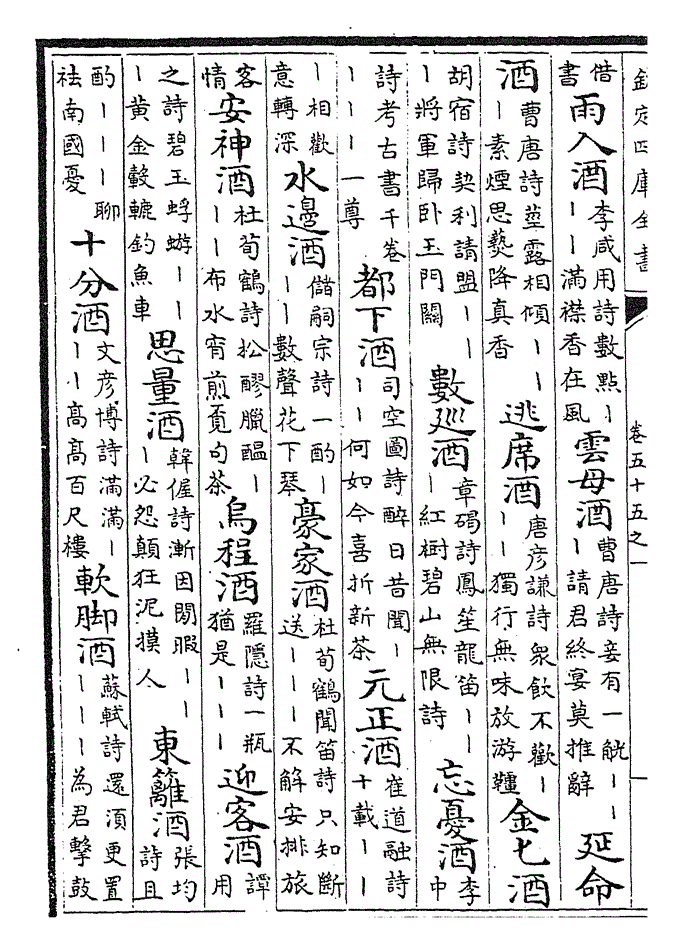 欽定四庫全書 卷五十五之一
借書 雨入酒 李咸用詩數點丨丨丨滿襟香在風 雲母酒 曹唐詩妾有一觥丨丨丨請君終宴莫推辭 延命
酒 曹唐詩莖露相傾丨丨丨素煙思爇降真香 逃席酒 唐彥謙詩衆飲不歡丨丨丨獨行無味放游韁 金七酒
胡宿詩契利請盟丨丨丨將軍歸卧玉門關 數廵酒 章碣詩鳳笙龍笛丨丨丨紅樹碧山無限詩 忘憂酒 李中
詩考古書千卷丨丨丨一尊 都下酒 司空圖詩醉日昔聞丨丨丨何如今喜折新茶 元正酒 崔道融詩十載丨丨
丨相歡意轉深 水邊酒 儲嗣宗詩一酌丨丨丨數聲花下琴 豪家酒 杜荀鶴聞笛詩只知斷送丨丨丨不解安排旅
客情 安神酒 杜荀鶴詩松醪臘醖丨丨丨布水宵煎覔句茶 烏程酒 羅隱詩一瓶猶是丨丨丨 迎客酒 譚用
之詩碧玉蜉蝣丨丨丨黄金轂轆釣魚車 思量酒 韓偓詩漸因閒暇丨丨丨必怨顛狂泥摸人 東籬酒 張均詩且
酌丨丨丨聊袪南國憂 十分酒 文彥博詩滿滿丨丨丨髙髙百尺樓 軟脚酒 蘇軾詩還須更置丨丨丨為君擊鼓